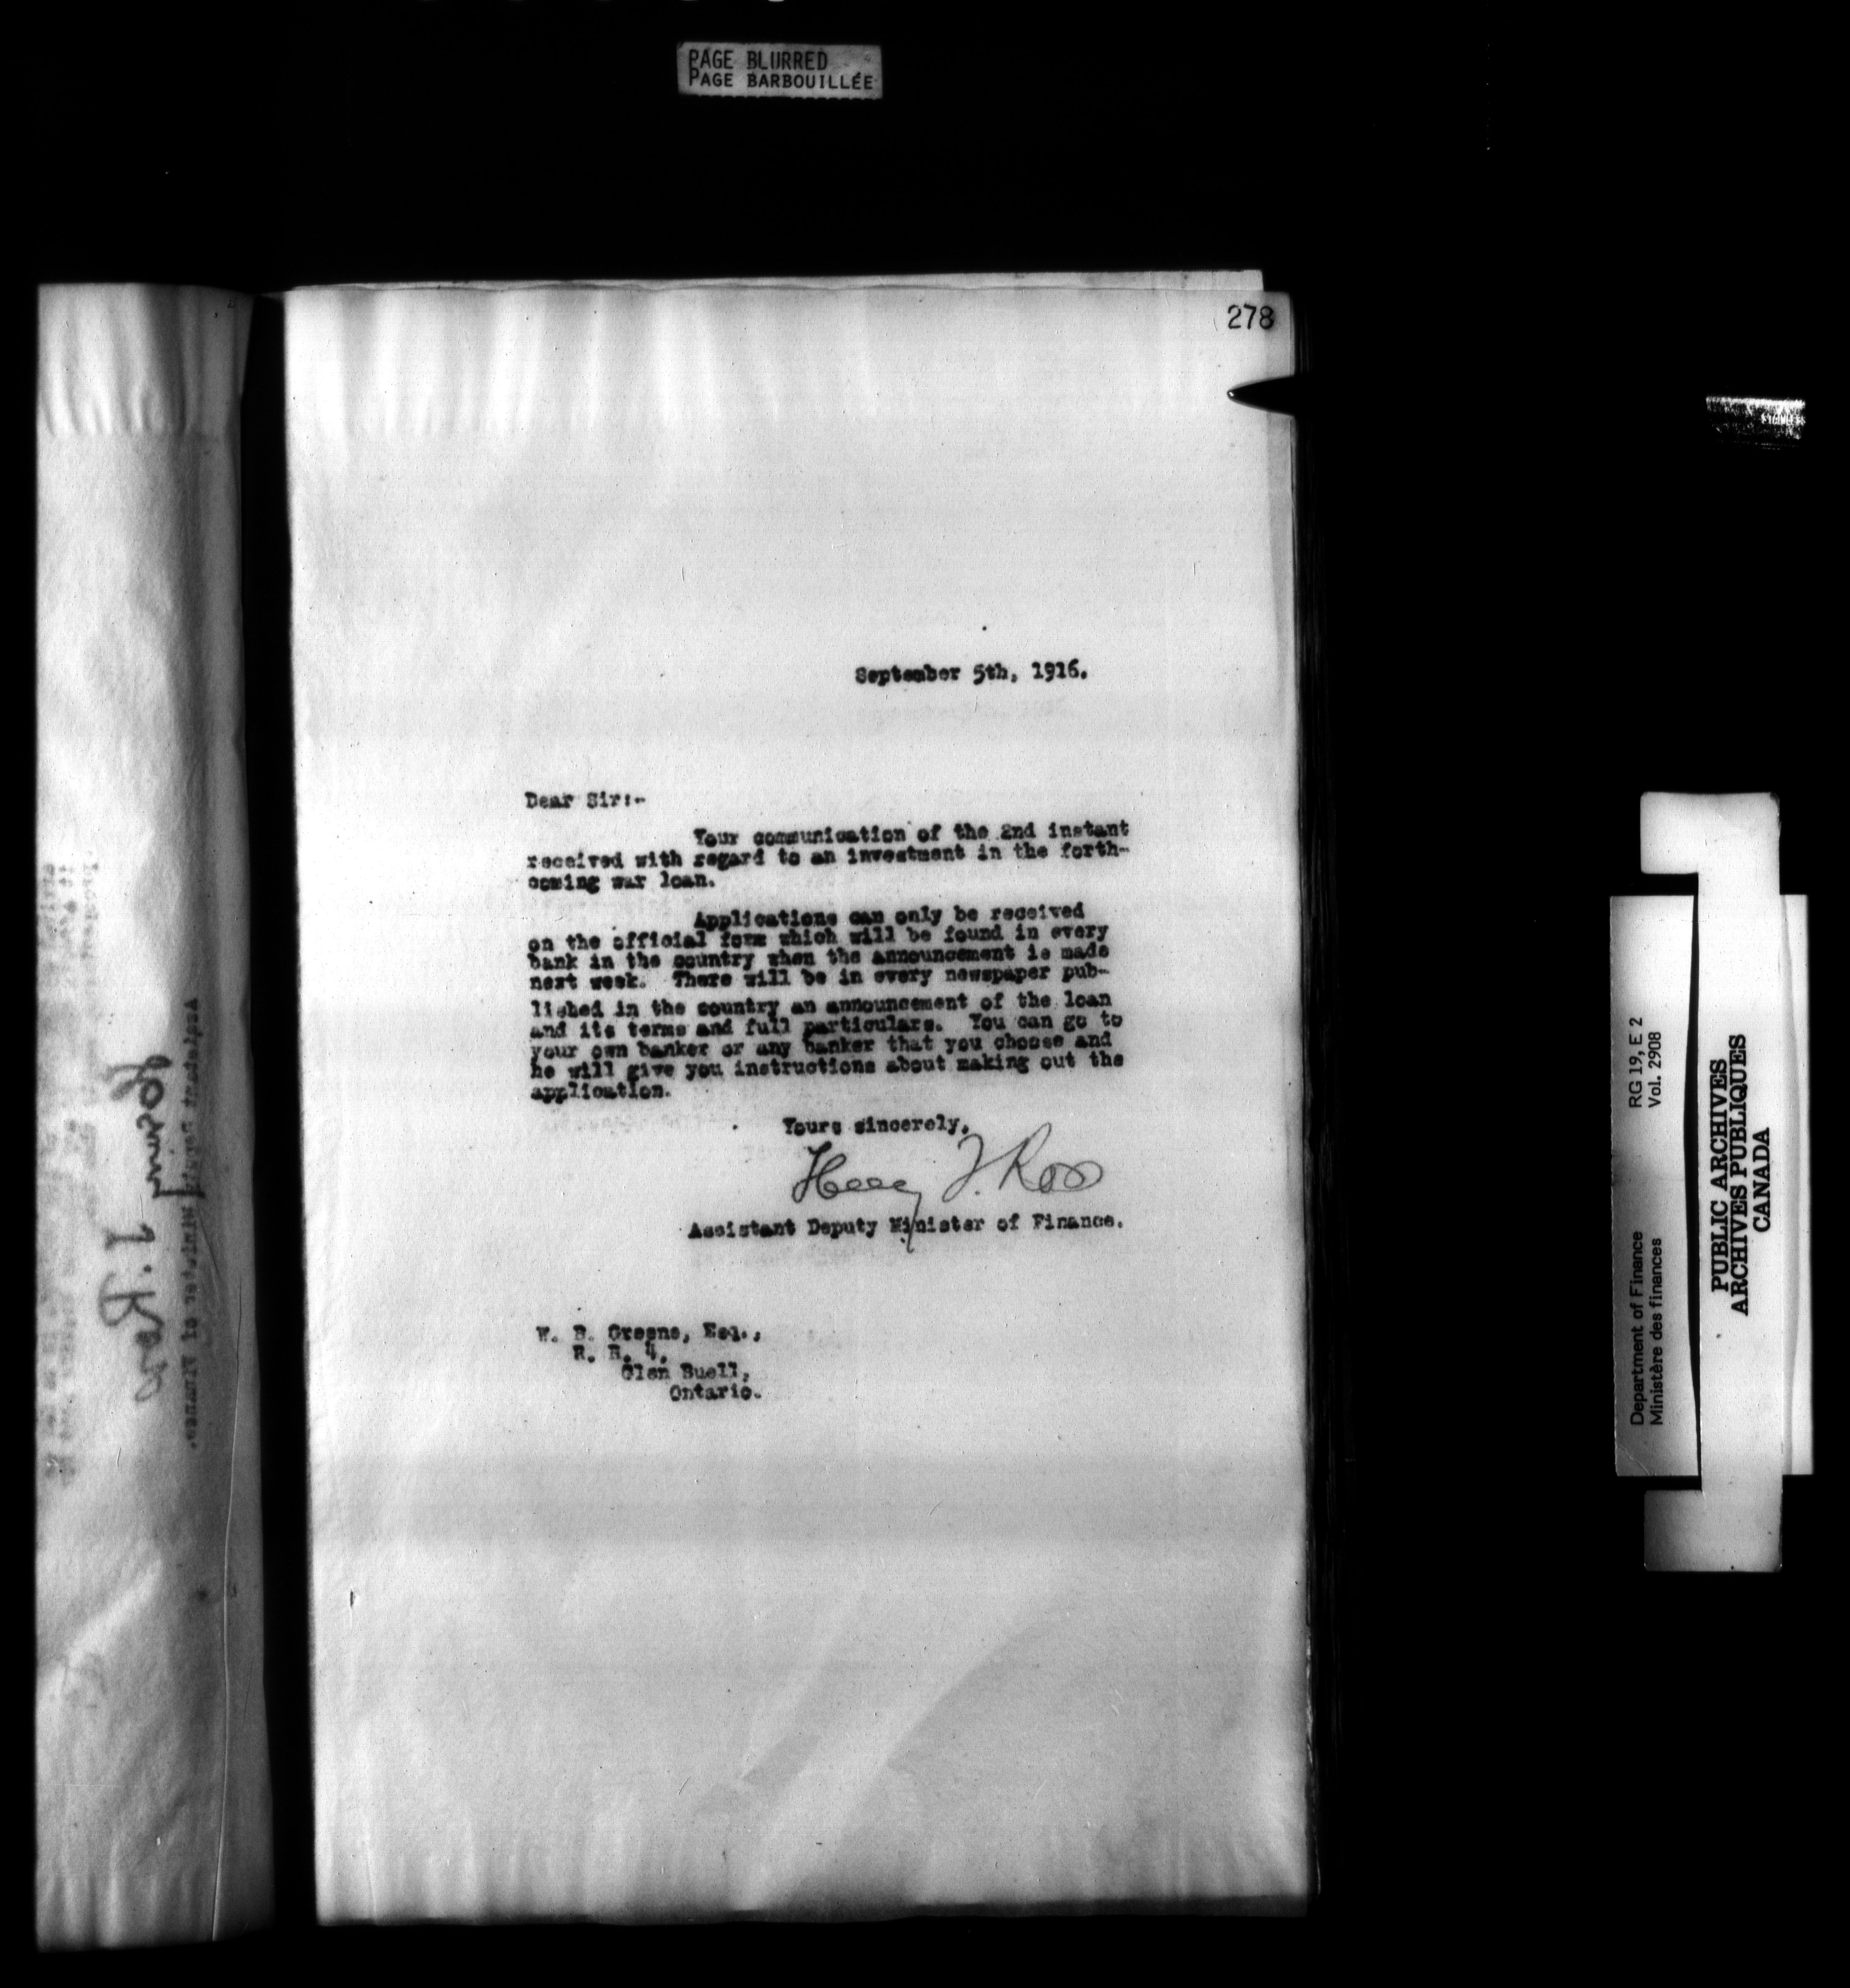 PAGE BLURRED
PAGE BARBOUILLÉE
278
September 5th, 1916.
Dear Sir:-
Your communication of the 2nd instant
received with regard to an investment in the forth-
coming war loan.
Applications can only be received
on the official form which will be found in every
bank in the country when the announcement is made
next week. There will be in every newspaper pub-
lished in the country an announcement of the loan
and its terms and full particulars. You can go to
your own banker or any banker that you choose and
he will give you instructions about making out the
application.
Yours sincerely,
Henry T. Ross
Assistant Deputy Minister of Finance.
W. B. Greene, Esq.,
R. R. 4,
Glen Buell,
Ontario.
Department of Finance RG 19, E 2
Ministère des finances Vol. 2908
PUBLIC ARCHIVES
ARCHIVES PUBLIQUES
CANADA